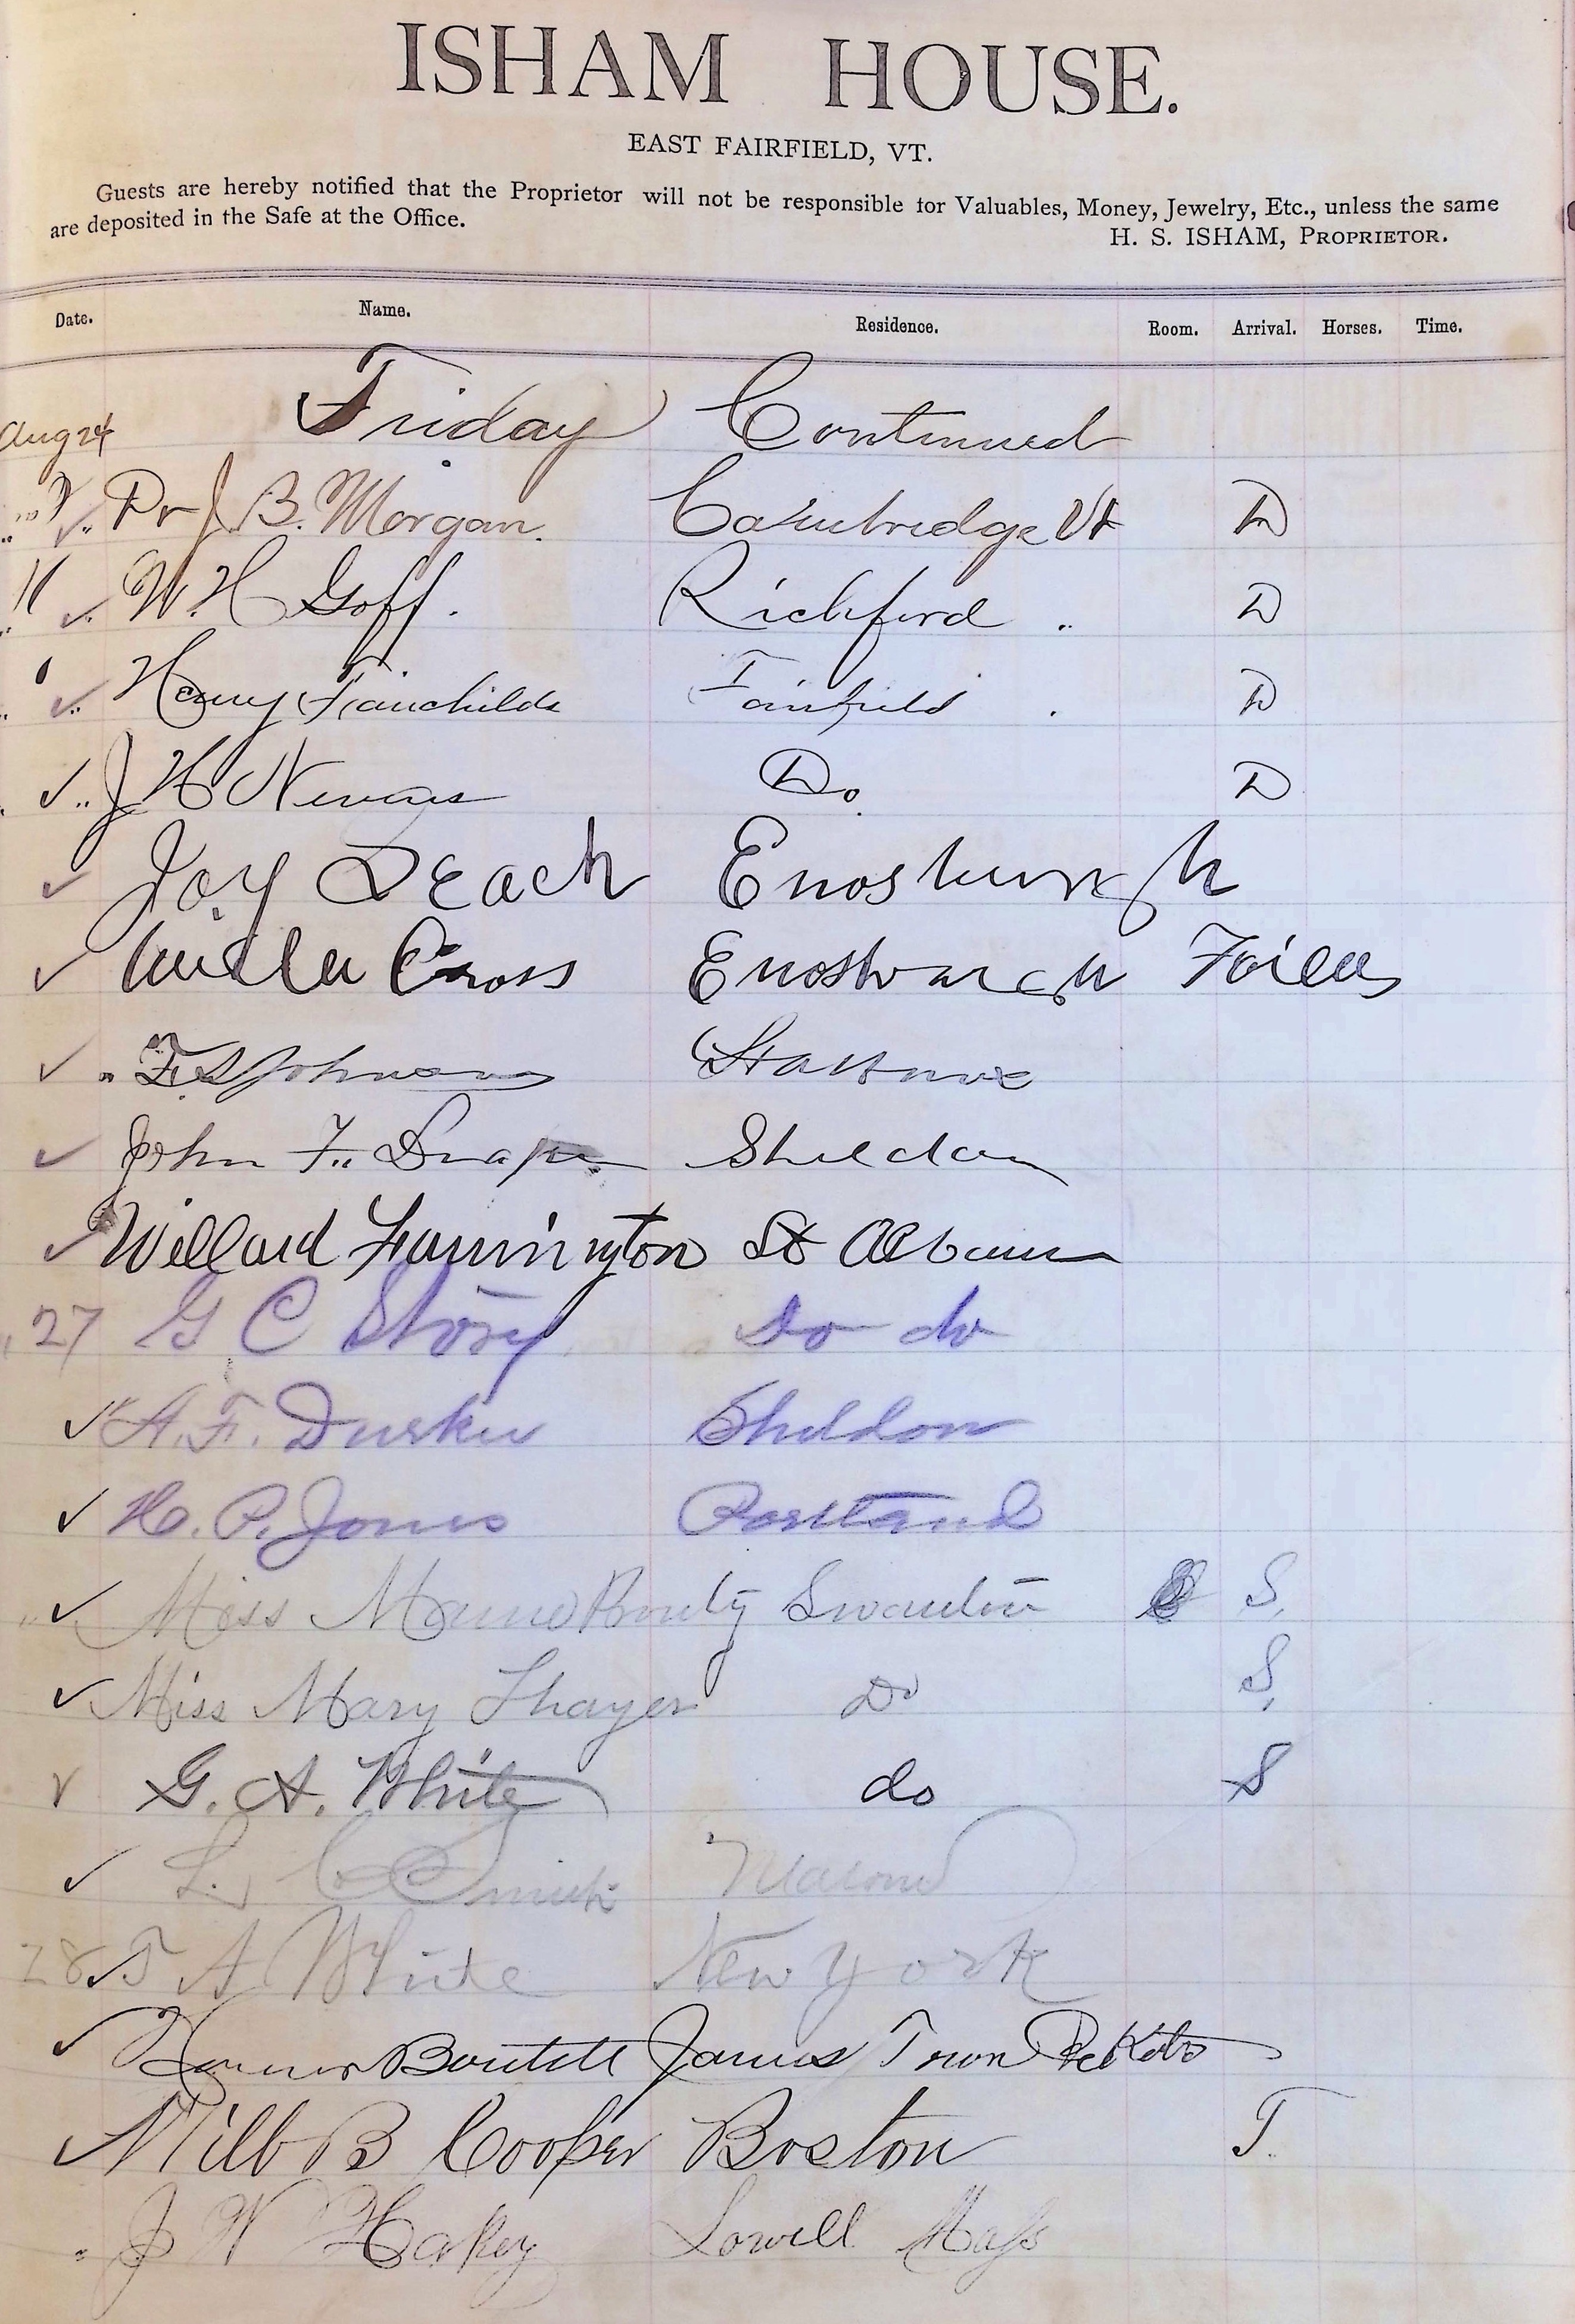 ISHAM HOUSE.
EAST FAIRFIELD, VT.
Guests are hereby notified that the Proprietor will not be responsible for Valuables, Money, Jewelry, Etc., unless the same
are deposited in the Safe at the Office.
H. S. ISHAM, PROPRIETOR.
Date. Name. Residence. Room. Arrival. Horses. Time.
Aug 24 Friday Continued
Dr J. B. Morgan. Cambridge Vt D
W. H Goff. Richford " D
Henry Fairchilds Fairfield " D
J H Nevins Do. D
Joy Leach Enosburgh
Cross Enosburgh Falls
F. S. Johnson
John F. Draper Sheldon
Willard Farrington St Albans
27 G C Story Do do
" A. F. Durkee Sheldon
H. P. Jones Portland
Miss Swanton S.
Miss Mary Thayer Do S.
G. A. White do S
L. C Smith Malone
28 T A White New York
Boutell James Town Dakota
Will B Cooper Boston T.
" J W Hakey Lowell Mass